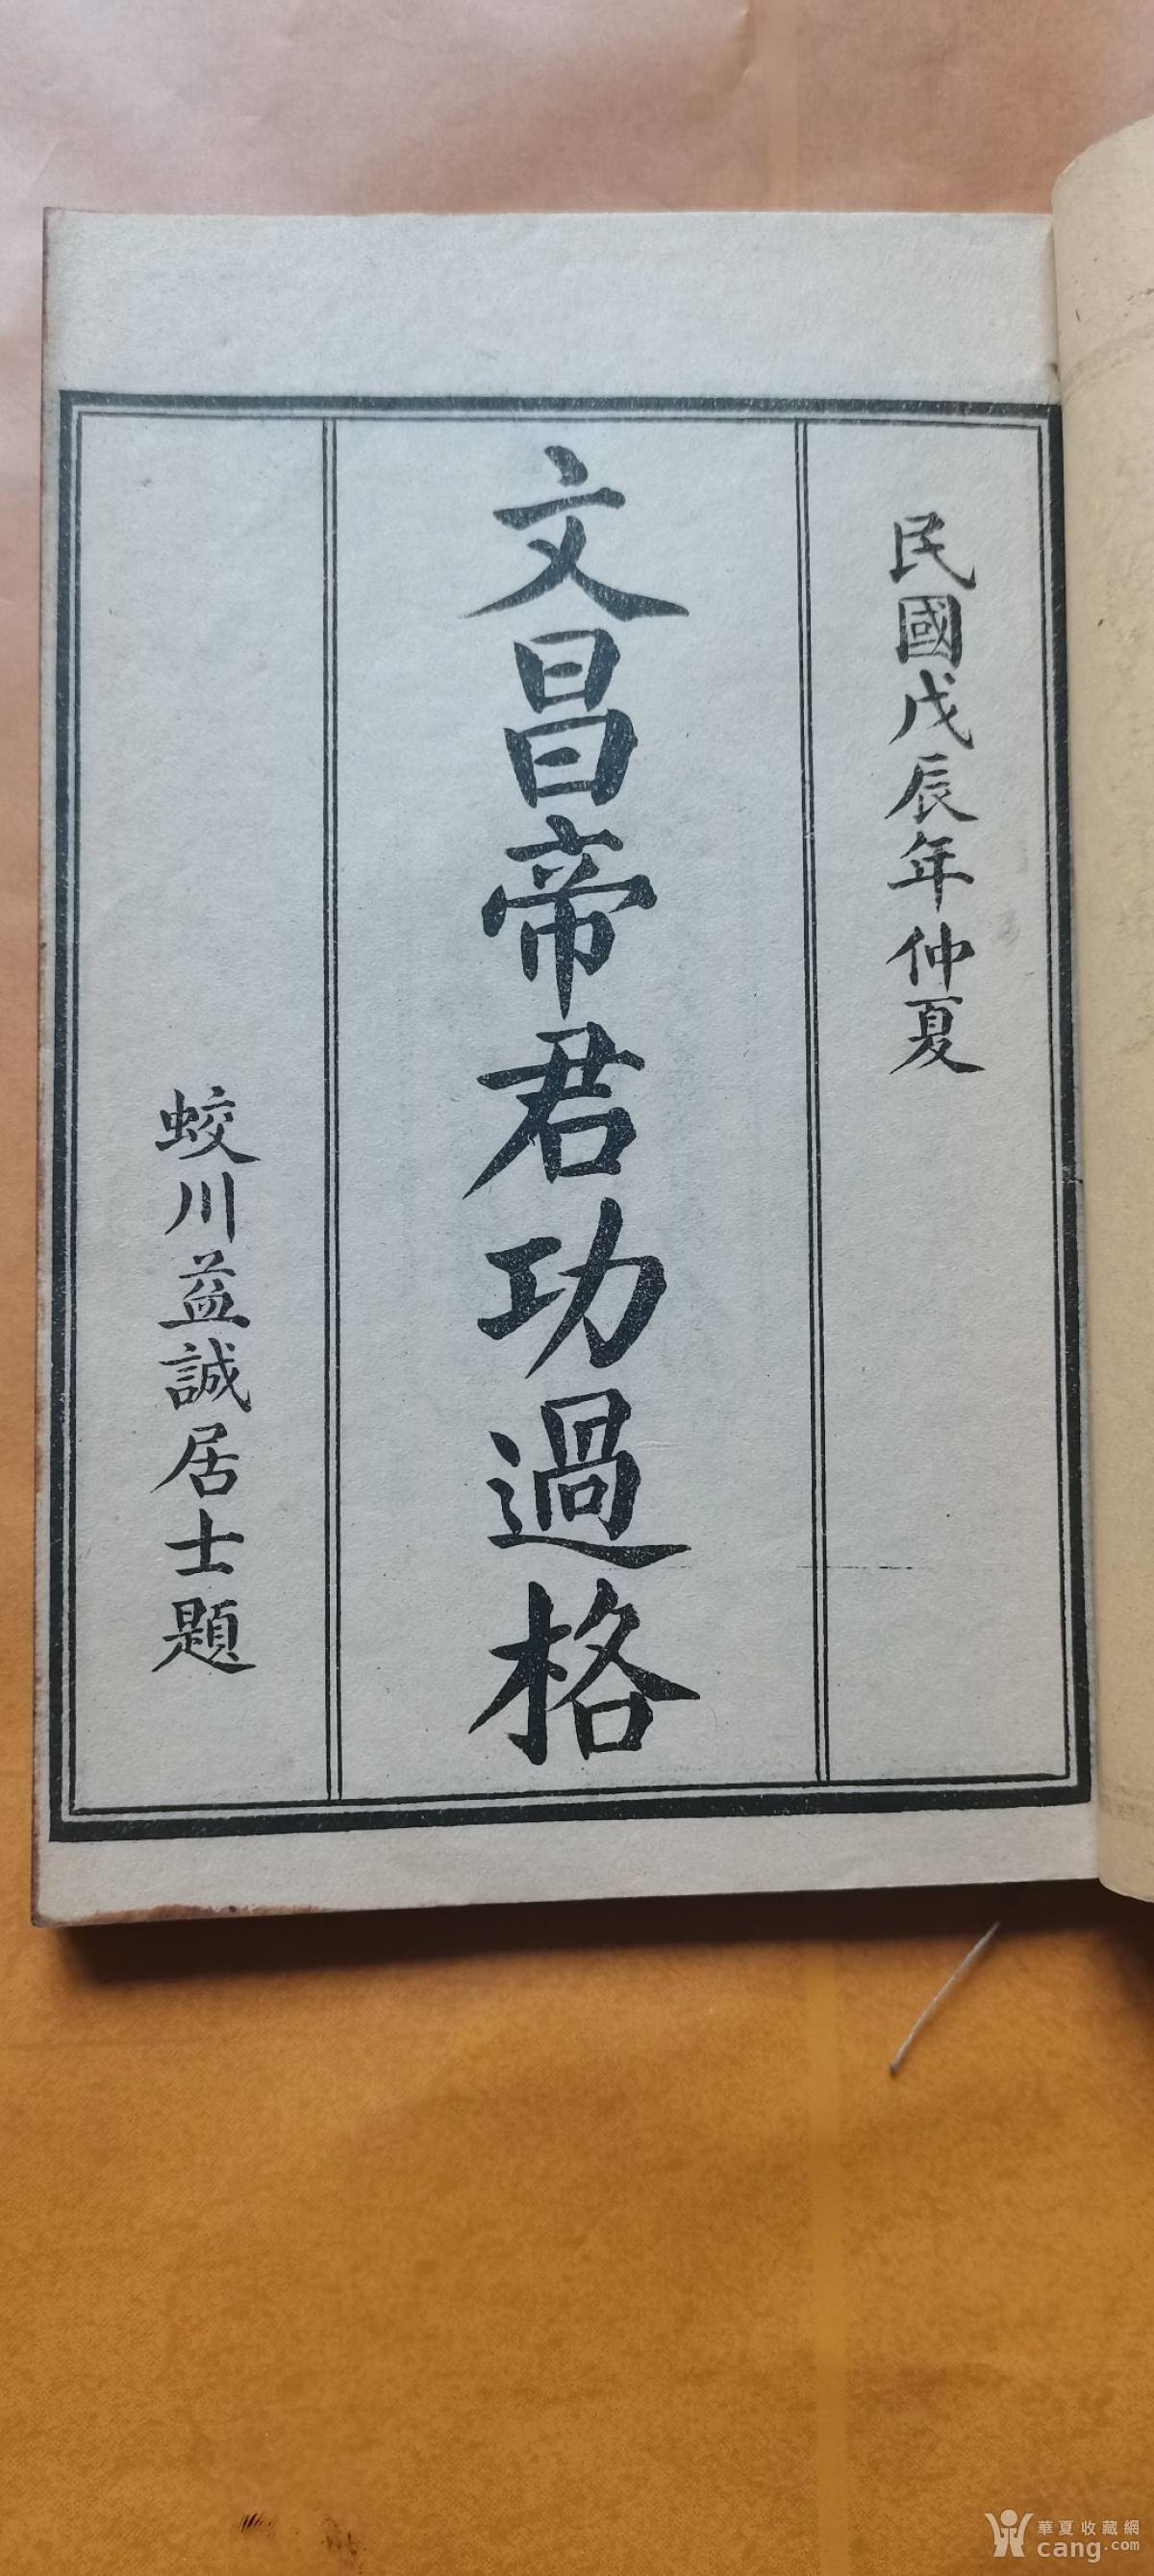 民國戊辰年仲夏
文昌帝君功過格
蛟川益誠居士題
華夏收藏網
cang.com